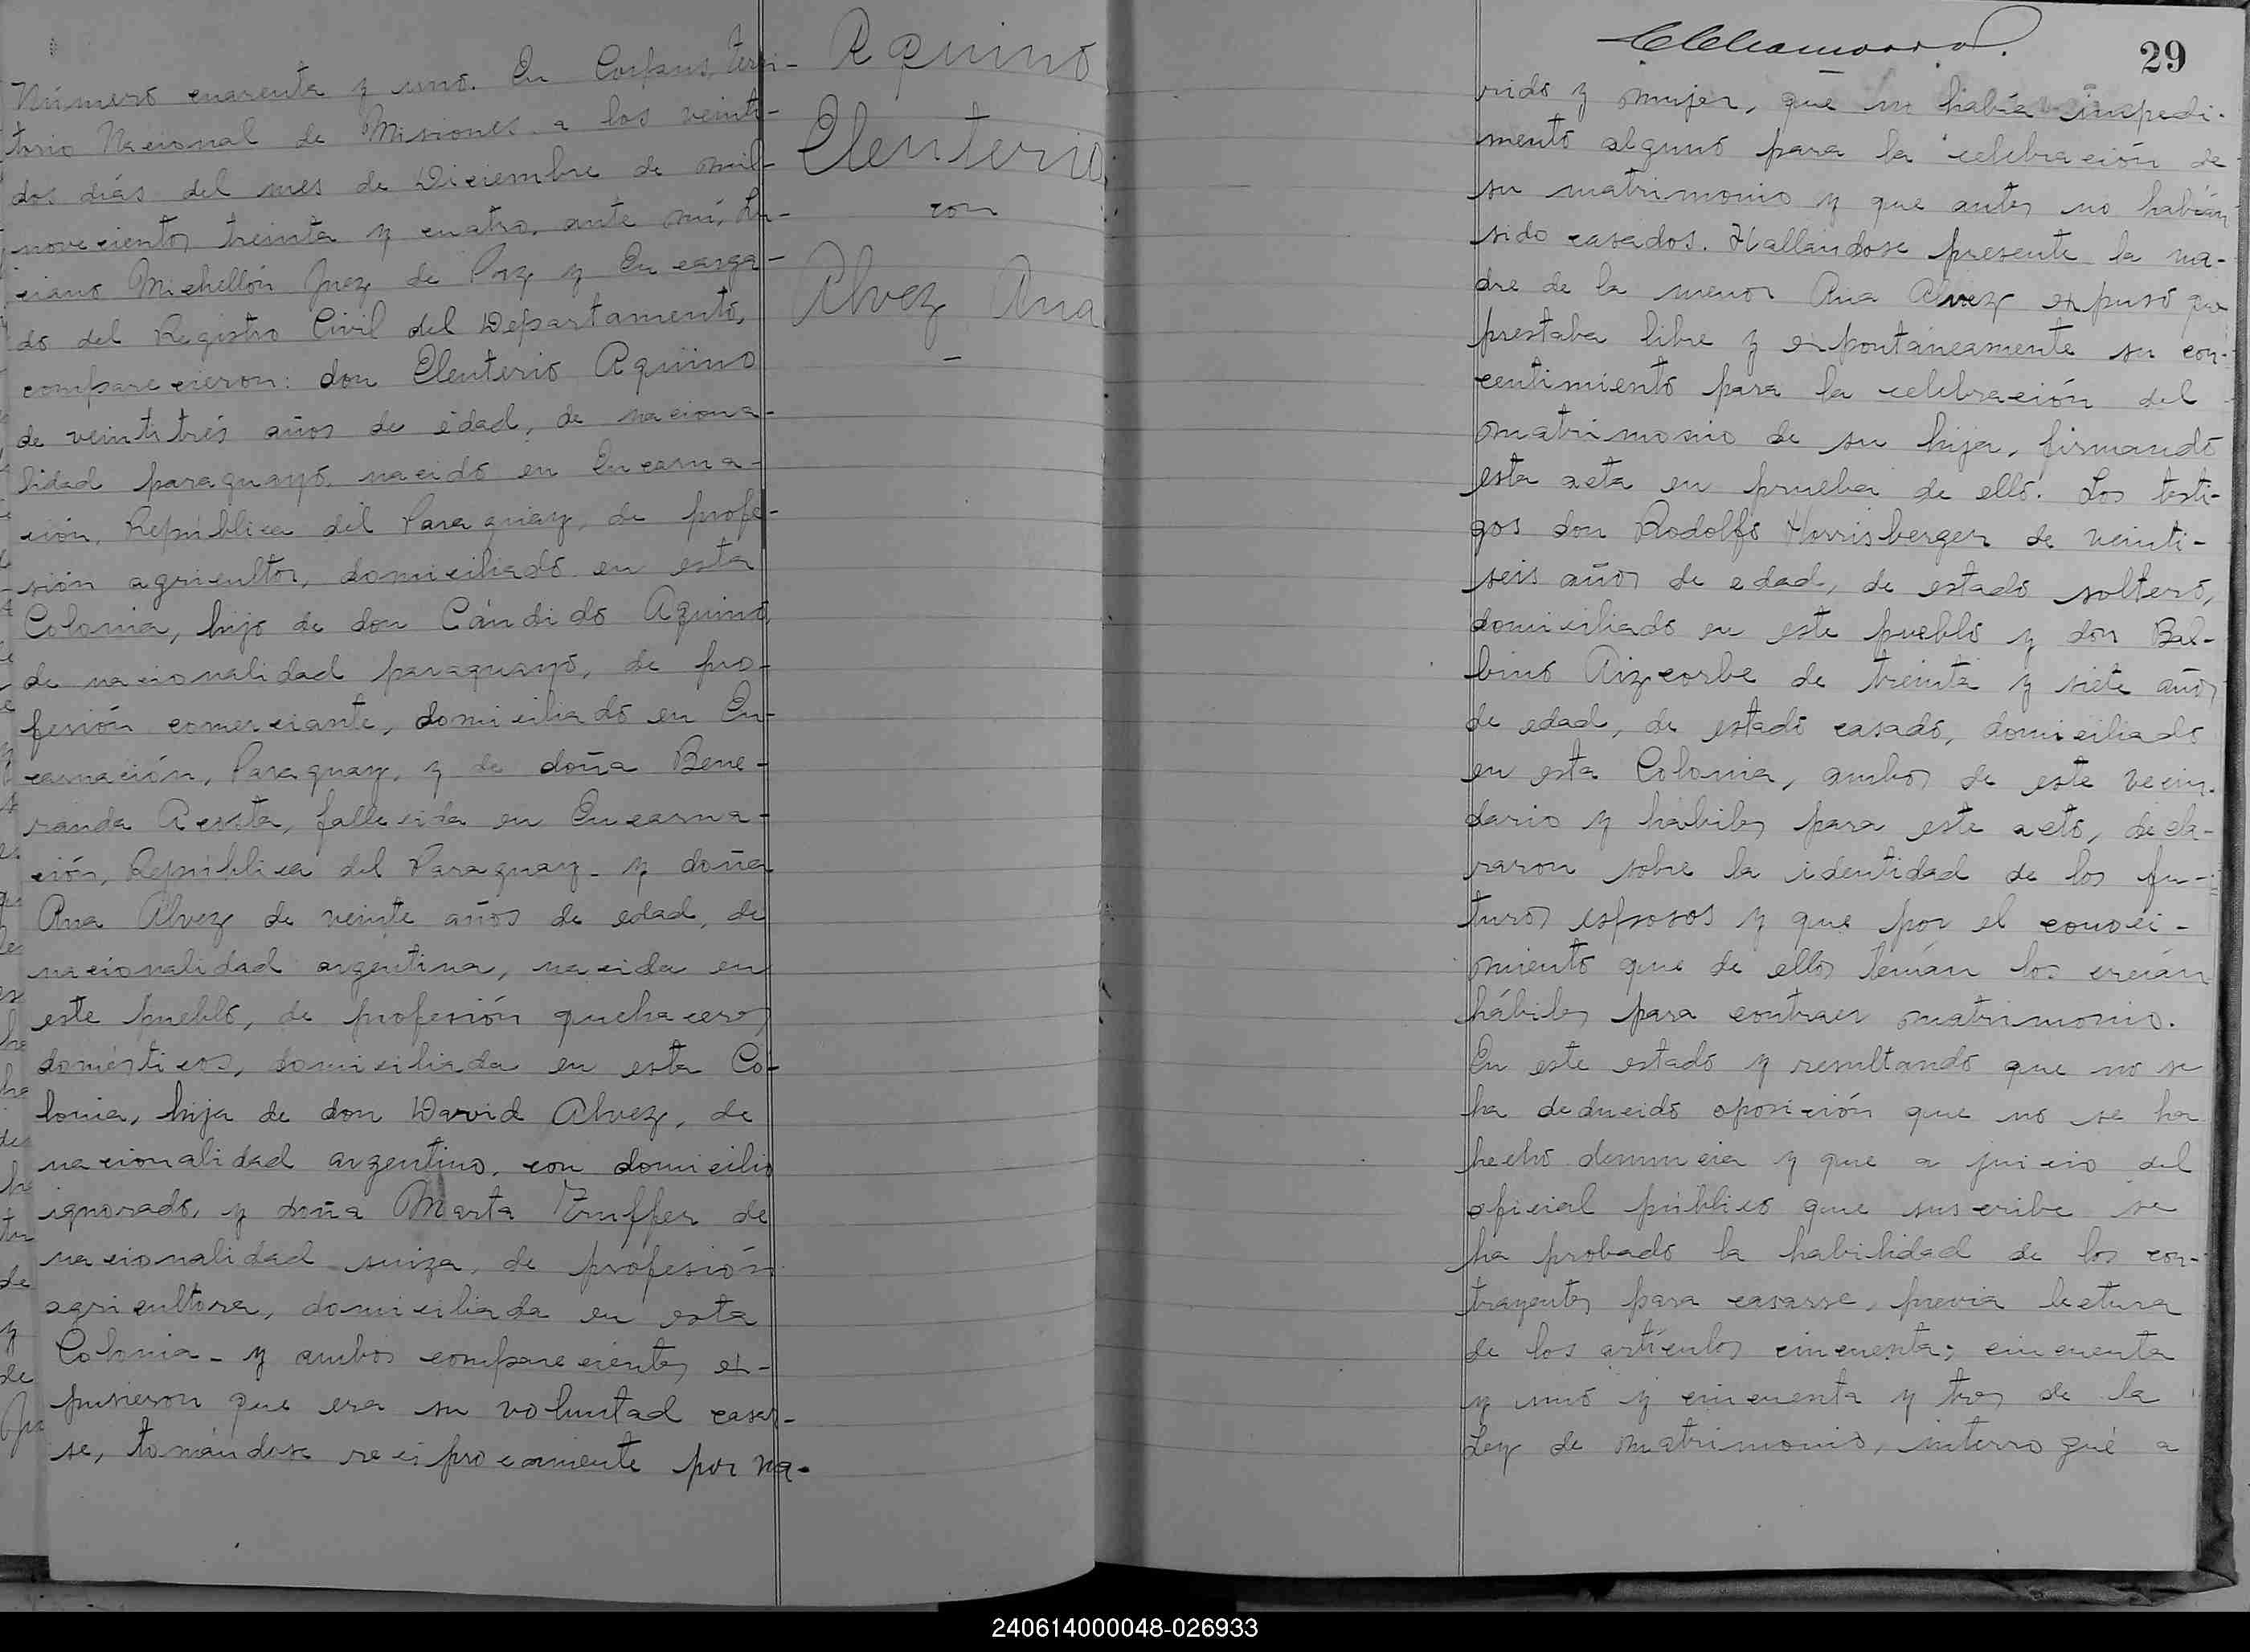 Número cuarenta y uno. En Corpus, terri-
torio Nacional de Misiones a los veinti-
dos días del mes de Diciembre de mil
novecientos treinta y cuatro, ante mí, Lu-
ciano Michellón Juez de Paz y Encarga-
do del Registro Civil del Departamento,
comparecieron: don Eleuterio Aquino
de veintitrés años de edad, de naciona-
lidad paraguayo, nacido en Encarna-
ción, República del Paraguay, de profe-
sión agricultor, domiciliado en esta
Colonia, hijo de don Cándido Aquino,
de nacionalidad paraguayo, de pro-
fesión comerciante, domiciliado en En-
carnación, Paraguay, y de doña Bene-
randa Acosta, fallecida en Encarna-
ción, República del Paraguay - y doña
Ana Alvez de veinte años de edad, de
nacionalidad argentina, nacida en
este pueblo, de profesión quehaceres
domésticos, domiciliada en esta Co-
lonia, hija de don David Alvez, de
nacionalidad argentino, con domicilio
ignorado, y doña Marta Truffer de
nacionalidad suiza, de profesión
agricultora, domiciliada en esta
Colonia - y ambos comparecientes ex-
pusieron que era su voluntad casar-
se, tomándose reciprocamente por ma-
Aquino
Eleuterio
con
Alvez Ana
29
rido y mujer, que no había impedi-
mento alguno para la celebración de
su matrimonio y que antes no habían
sido casados. Hallandose presente la ma-
dre de la menor Ana Alvez expuso que
prestaba libre y expontáneamente su con-
centimiento para la celebración del
matrimonio de su hija, firmando
esta acta en prueba de ello. Los testi-
gos don Rodolfo Horrisberger de veinti-
seis años de edad, de estado soltero,
domiciliado en este pueblo y don Bal-
bino Aizcorbe de treinta y siete años
de edad, de estado casado, domiciliado
en esta Colonia, ambos de este vecin-
dario y hábiles para este acto, decla-
raron sobre la identidad de los fu-
turos esposos y que por el conoci-
miento que de ellos tenían los creían
hábiles para contraer matrimonio.
En este estado y resultando que no se
ha deducido oposición que no se ha
hecho denuncia y que a juicio del
oficial público que suscribe se
ha probado la habilidad de los con-
trayentes para casarse, previa lectura
de los artículos cincuenta; cincuenta
y uno y cincuenta y tres de la
Ley de matrimonio, interrogué a
240614000048-026933